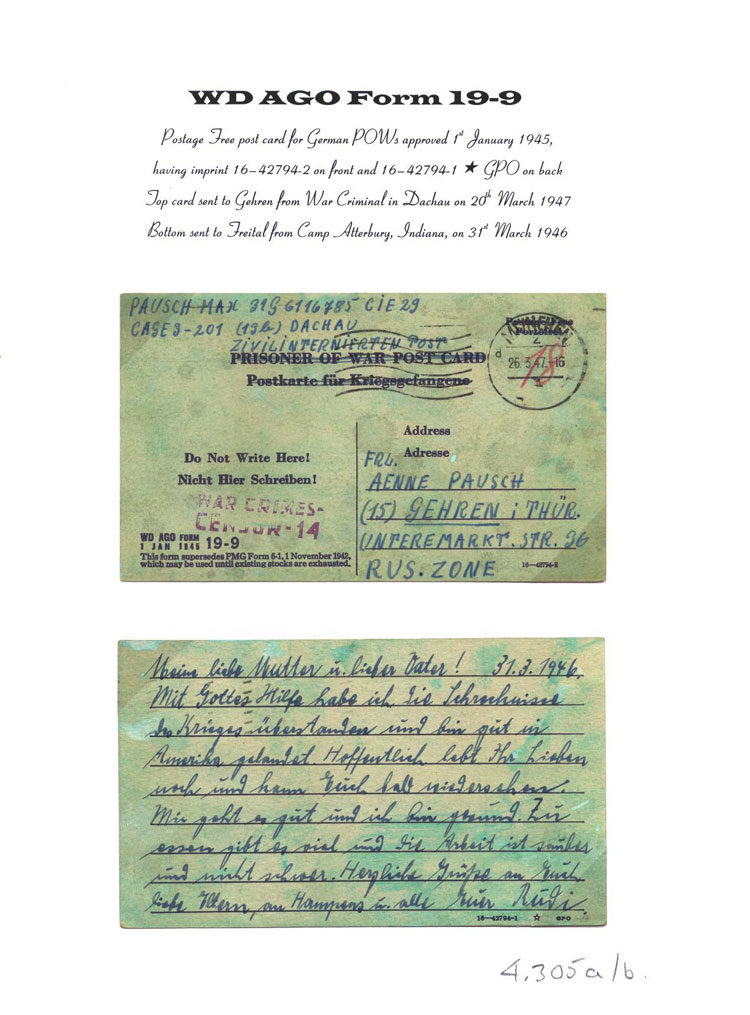 WD AGO Form 19-9
Postage Free post card for German POWs approved 1st January 1945,
having imprint 16–42794-2 on front and 16–42794-1 ★ GPO on back
Top card sent to Gehren from War Criminal in Dachau on 20th March 1947
Bottom sent to Freital from Camp Atterbury, Indiana, on 31st March 1946
PAUSCH MAX 31G 6116785 CIE 29
CAGE 3-201 (13b) DACHAU
ZIVILINTERNIERTEN POST
PRISONER OF WAR POST CARD
Postkarte für Kriegsgefangene
Portofrei
26.3.47.-16
18
Address
Adresse
Do Not Write Here!
Nicht Hier Schreiben!
WAR CRIMES-
CENSOR-14
FRL.
AENNE PAUSCH
(15) GEHREN i THÜR.
UNTEREMARKT. STR. 36
RUS. ZONE
WD AGO FORM 19-9
1 JAN 1945
This form supersedes PMG Form 6-1, 1 November 1942,
which may be used until existing stocks are exhausted.
16—42794-2
Meine liebe Mutter u. lieber Vater! 31.3.1946.
Mit Gottes Hilfe habe ich die Schrecknisse
des Krieges überstanden und bin gut in
Amerika gelandet. Hoffentlich lebt Ihr Lieben
noch und kann Euch bald wiedersehen.
Mir geht es gut und ich bin gesund. Zu
essen gibt es viel und die Arbeit ist sauber
und nicht schwer. Herzliche Grüße an Euch
liebe Eltern, an u. alle Euer Rudi.
16—42794-1 ☆ GPO
4.305a/b.